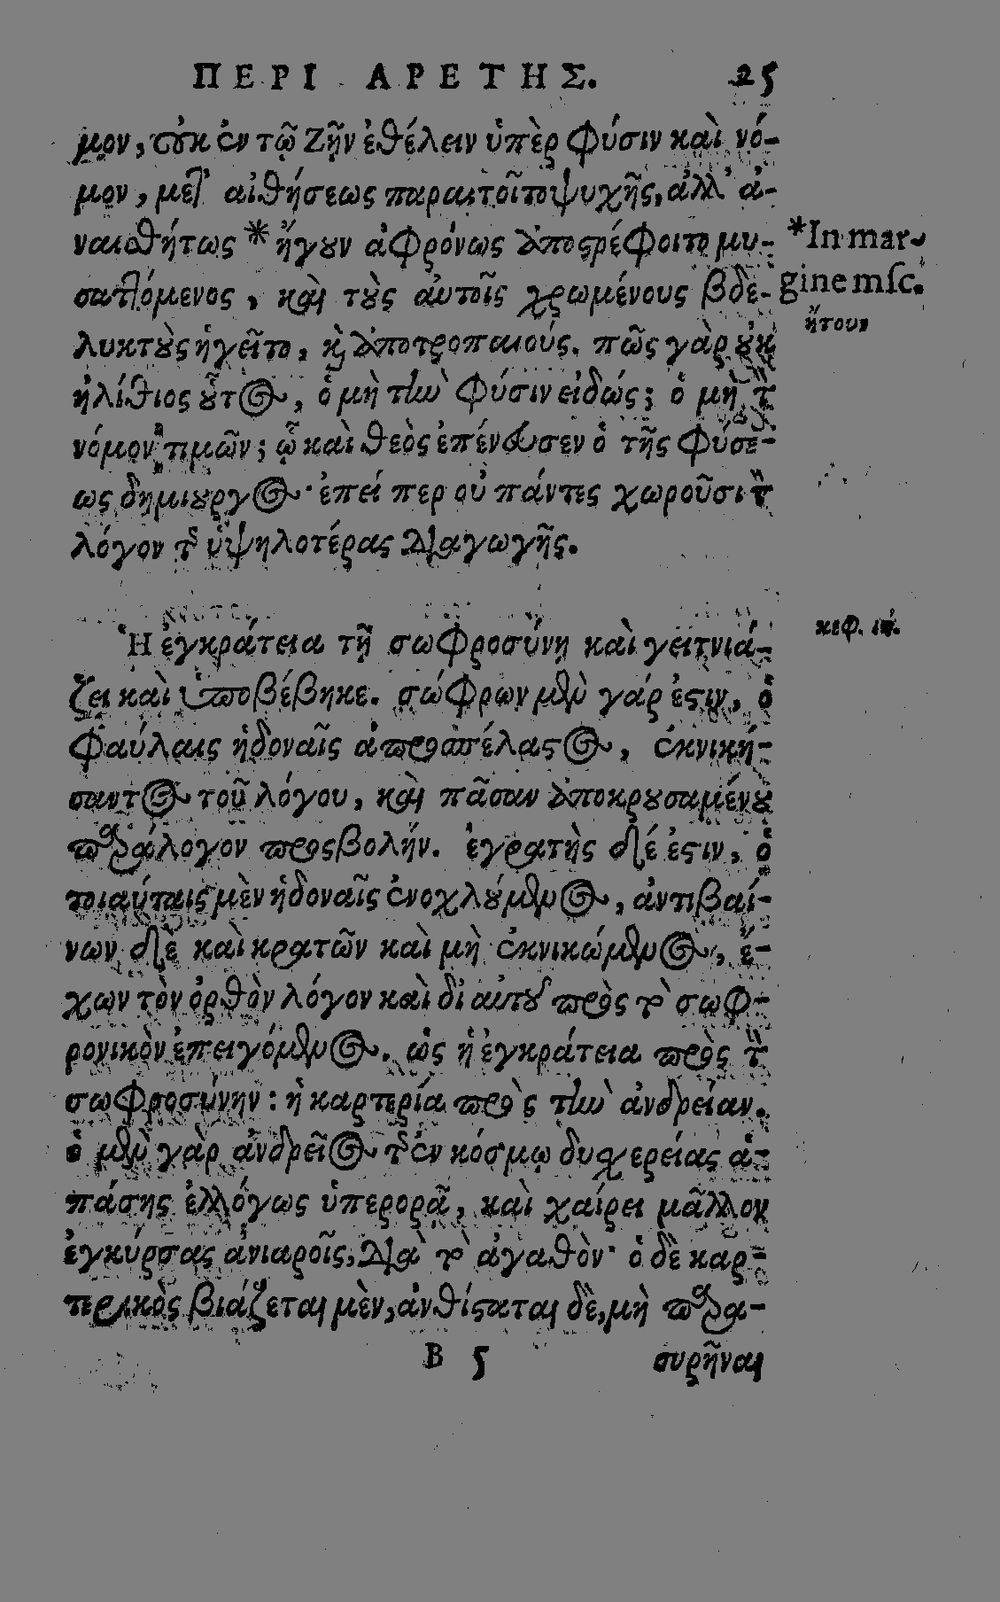 ΠΕΡΙ ΑΡΕΤΗΣ. 25
μον, οὐκ ἐν τῷ ζῆν ἐθέλειν ὑπὲρ φύσιν καὶ νό-
μον, μετ' αἰθήσεως παραιτοῖτο ψυχῆς, ἀλλ' ἀ-
ναιαθήτως * ἤγουν ἀφρόνως ἀποστρέφοιτο μυ-
σαττόμενος, καὶ τοὺς αὐτοῖς χρωμένους βδε-
λυκτοὺς ἡγεῖτο, καὶ ἀποτροπαιούς. πῶς γὰρ οὐκ
ἠλίθιος οὗτος, ὁ μὴ τὴν φύσιν εἰδώς; ὁ μὴ τὸν
νόμον τιμῶν; ᾧ καὶ θεὸς ἐπένευσεν ὁ τῆς φύσε-
ως δημιουργός· ἐπεί περ οὐ πάντες χωροῦσι τὸν
λόγον τῆς ὑψηλοτέρας διαγωγῆς.
*In mar-
gine msc.
ἤτουν
κεφ. ιή.
Ἡ ἐγκράτεια τῇ σωφροσύνῃ καὶ γειτνιά-
ζει καὶ ὑποβέβηκε. σώφρων μὲν γάρ ἐστιν, ὁ
φαύλαις ἡδοναῖς ἀπροσπέλαστος, ἐκνική-
σαντος τοῦ λόγου, καὶ πᾶσαν ἀποκρουσαμένου
παράλογον προσβολήν. ἐγρατὴς δέ ἐστιν, ὁ
τοιαύταις μὲν ἡδοναῖς ἐνοχλούμενος, ἀντιβαί-
νων δὲ καὶ κρατῶν καὶ μὴ ἐκνικώμενος, ἔ-
χων τὸν ὀρθὸν λόγον καὶ δι' αὐτοῦ πρὸς τὸ σωφ-
ρονικὸν ἐπειγόμενος. ὡς ἡ ἐγκράτεια πρὸς τὴν
σωφροσύνην: ἡ καρτερία πρὸς τὴν ἀνδρείαν.
ὁ μὲν γὰρ ἀνδρεῖος τῆς ἐν κόσμῳ δυσχερείας ἁ-
πάσης ἐλλόγως ὑπερορᾷ, καὶ χαίρει μᾶλλον
ἐγκύρσας ἀνιαροῖς, διὰ τὸ ἀγαθόν· ὁ δὲ καρ-
τερικὸς βιάζεται μὲν, ἀνθίσταται δὲ, μὴ παρα-
B 5 συρῆναι